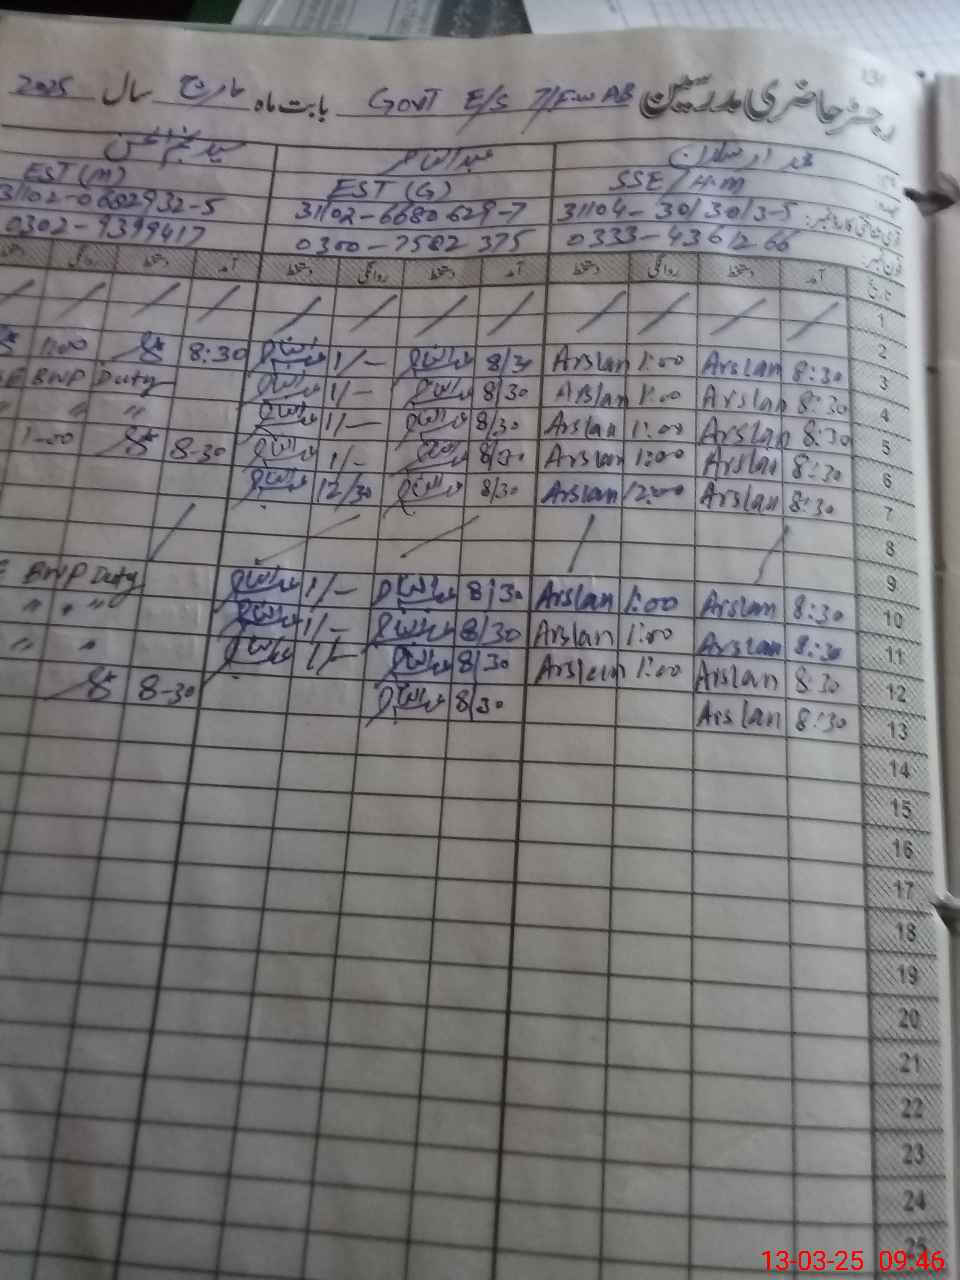 رجسٹر حاضری مدرسین GOVT E/S 7/FW AB بابت ماہ مارچ سال 2025
SSE/HM EST (G) EST (M)
31104-3013013-5 31102-6680629-7 31102-0602932-5
فون نمبر: 0333-4361266 0300-7582375 0302-9399417
تاریخ آمد دستخط روانگی دستخط آمد دستخط روانگی دستخط آمد دستخط روانگی
1
2
3 8:30 Arslan 1:00 Arslan 8/30 1/- 8:30 1:00
4 8:30 Arslan 1:00 Arslan 8/30 1/- BWP Duty
5 8:30 Arslan 1:00 Arslan 8/30 1/- " "
6 8:30 Arslan 1:00 Arslan 8/30 1/- 8-30 1-00
7 8:30 Arslan 12:00 Arslan 8/30 12/30
8
9
10 8:30 Arslan 1:00 Arslan 8/30 1/- BWP Duty
11 8:30 Arslan 1:00 Arslan 8/30 1/- " " "
12 8:30 Arslan 1:00 Arslan 8/30 1/- " "
13 8:30 Arslan 8/30 8-30
14
15
16
17
18
19
20
21
22
23
24
25
13-03-25 09:46